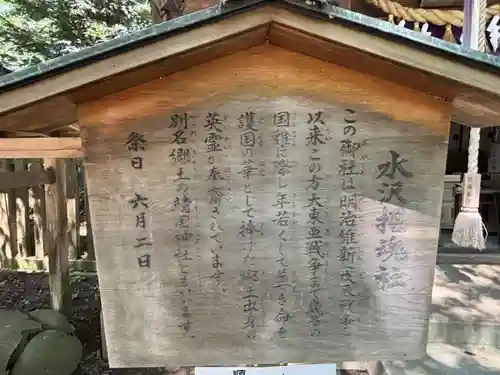 水沢招魂社
この御社は明治維新
以来この方大東亜戦争まで幾多の
国難に際し年若くして尊き命を
護国の華として捧げた郷土出身の
英霊が奉斎されています。
別名郷土の靖国神社と云います。
祭日 六月二日